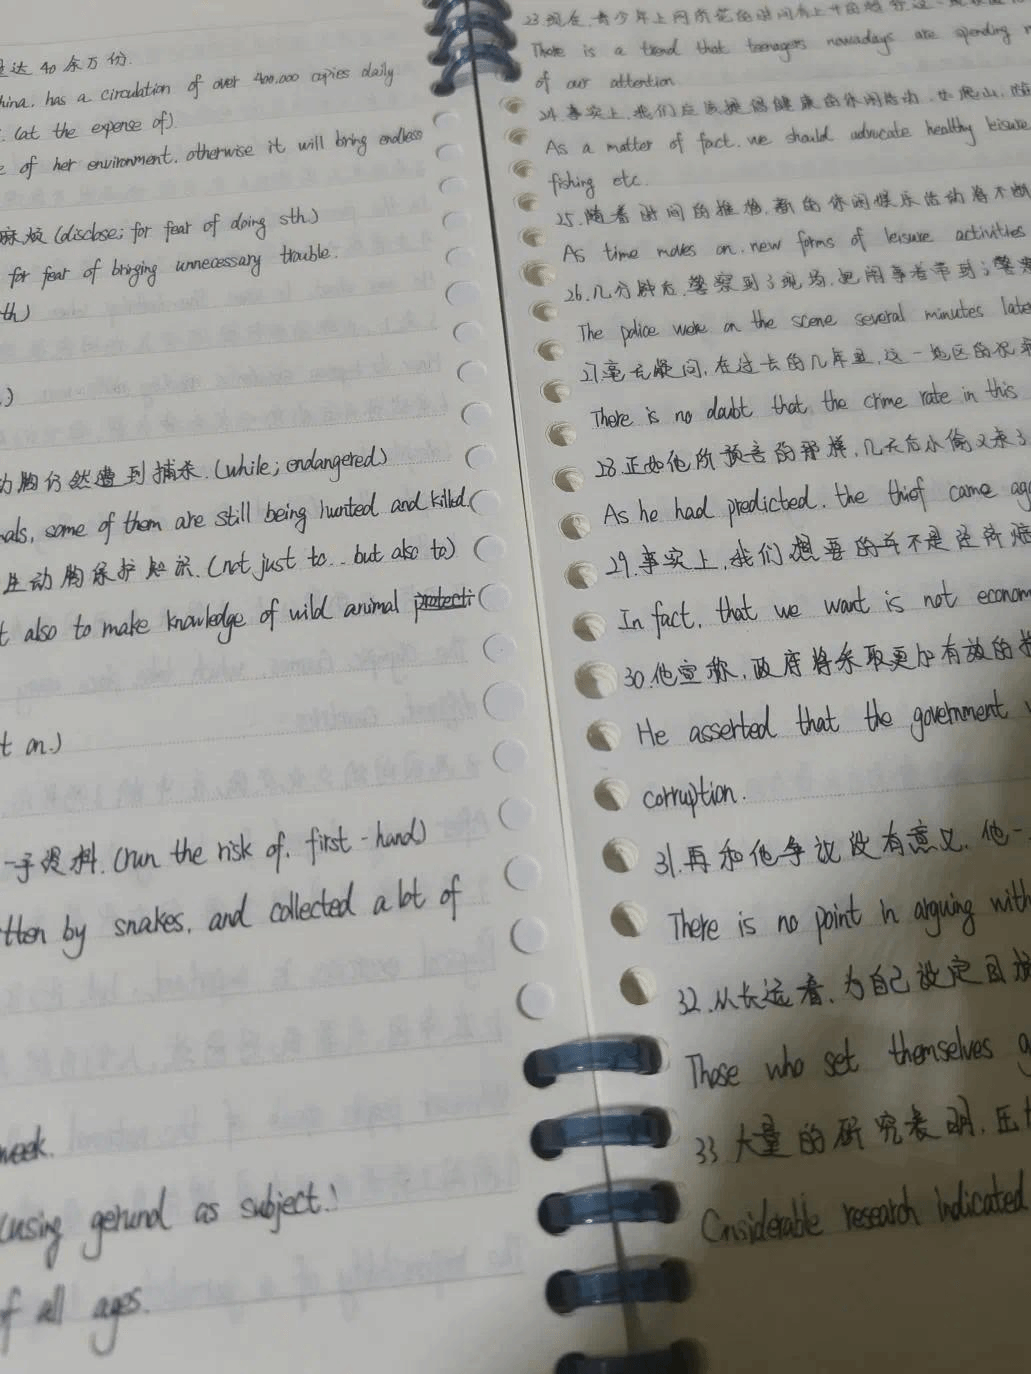 达 40 余万份.
hina. has a circulation of over 400,000 copies daily
(at the expense of)
of her environment, otherwise it will bring endless
麻烦 (disclose; for fear of doing sth.)
for fear of bringing unnecessary trouble.
th)
动物仍然遭到捕杀. (while; endangered)
als, some of them are still being hunted and killed.
生动物保护知识. (not just to... but also to)
t also to make knowledge of wild animal
t on.)
一手资料. (run the risk of, first-hand)
tten by snakes, and collected a lot of
week.
(using gerund as subject.)
of all ages.
23. 现在, 青少年上网所花的时间有上升的趋势
There is a trend that teenagers nowadays are spending
of our attention.
24. 事实上, 我们应该提倡健康的休闲活动, 如爬山,
As a matter of fact, we should advocate healthy leisure
fishing etc.
25. 随着时间的推移, 新的休闲娱乐活动将不断
As time moves on, new forms of leisure activities
26. 几分钟后, 警察到了现场, 把闹事者带到了警
The police were on the scene several minutes late
27. 毫无疑问, 在过去的几年里, 这一地区的犯
There is no doubt that the crime rate in this
28. 正如他所预言的那样, 几天后小偷又来了
As he had predicted, the thief came aga
29. 事实上, 我们想要的并不是经济
In fact, that we want is not econom
30. 他宣称, 政府将采取更加有效的
He asserted that the government
corruption.
31. 再和他争议没有意义, 他一
There is no point in arguing with
32. 从长远看, 为自己设定目标
Those who set themselves g
33. 大量的研究表明, 压
Considerable research indicated